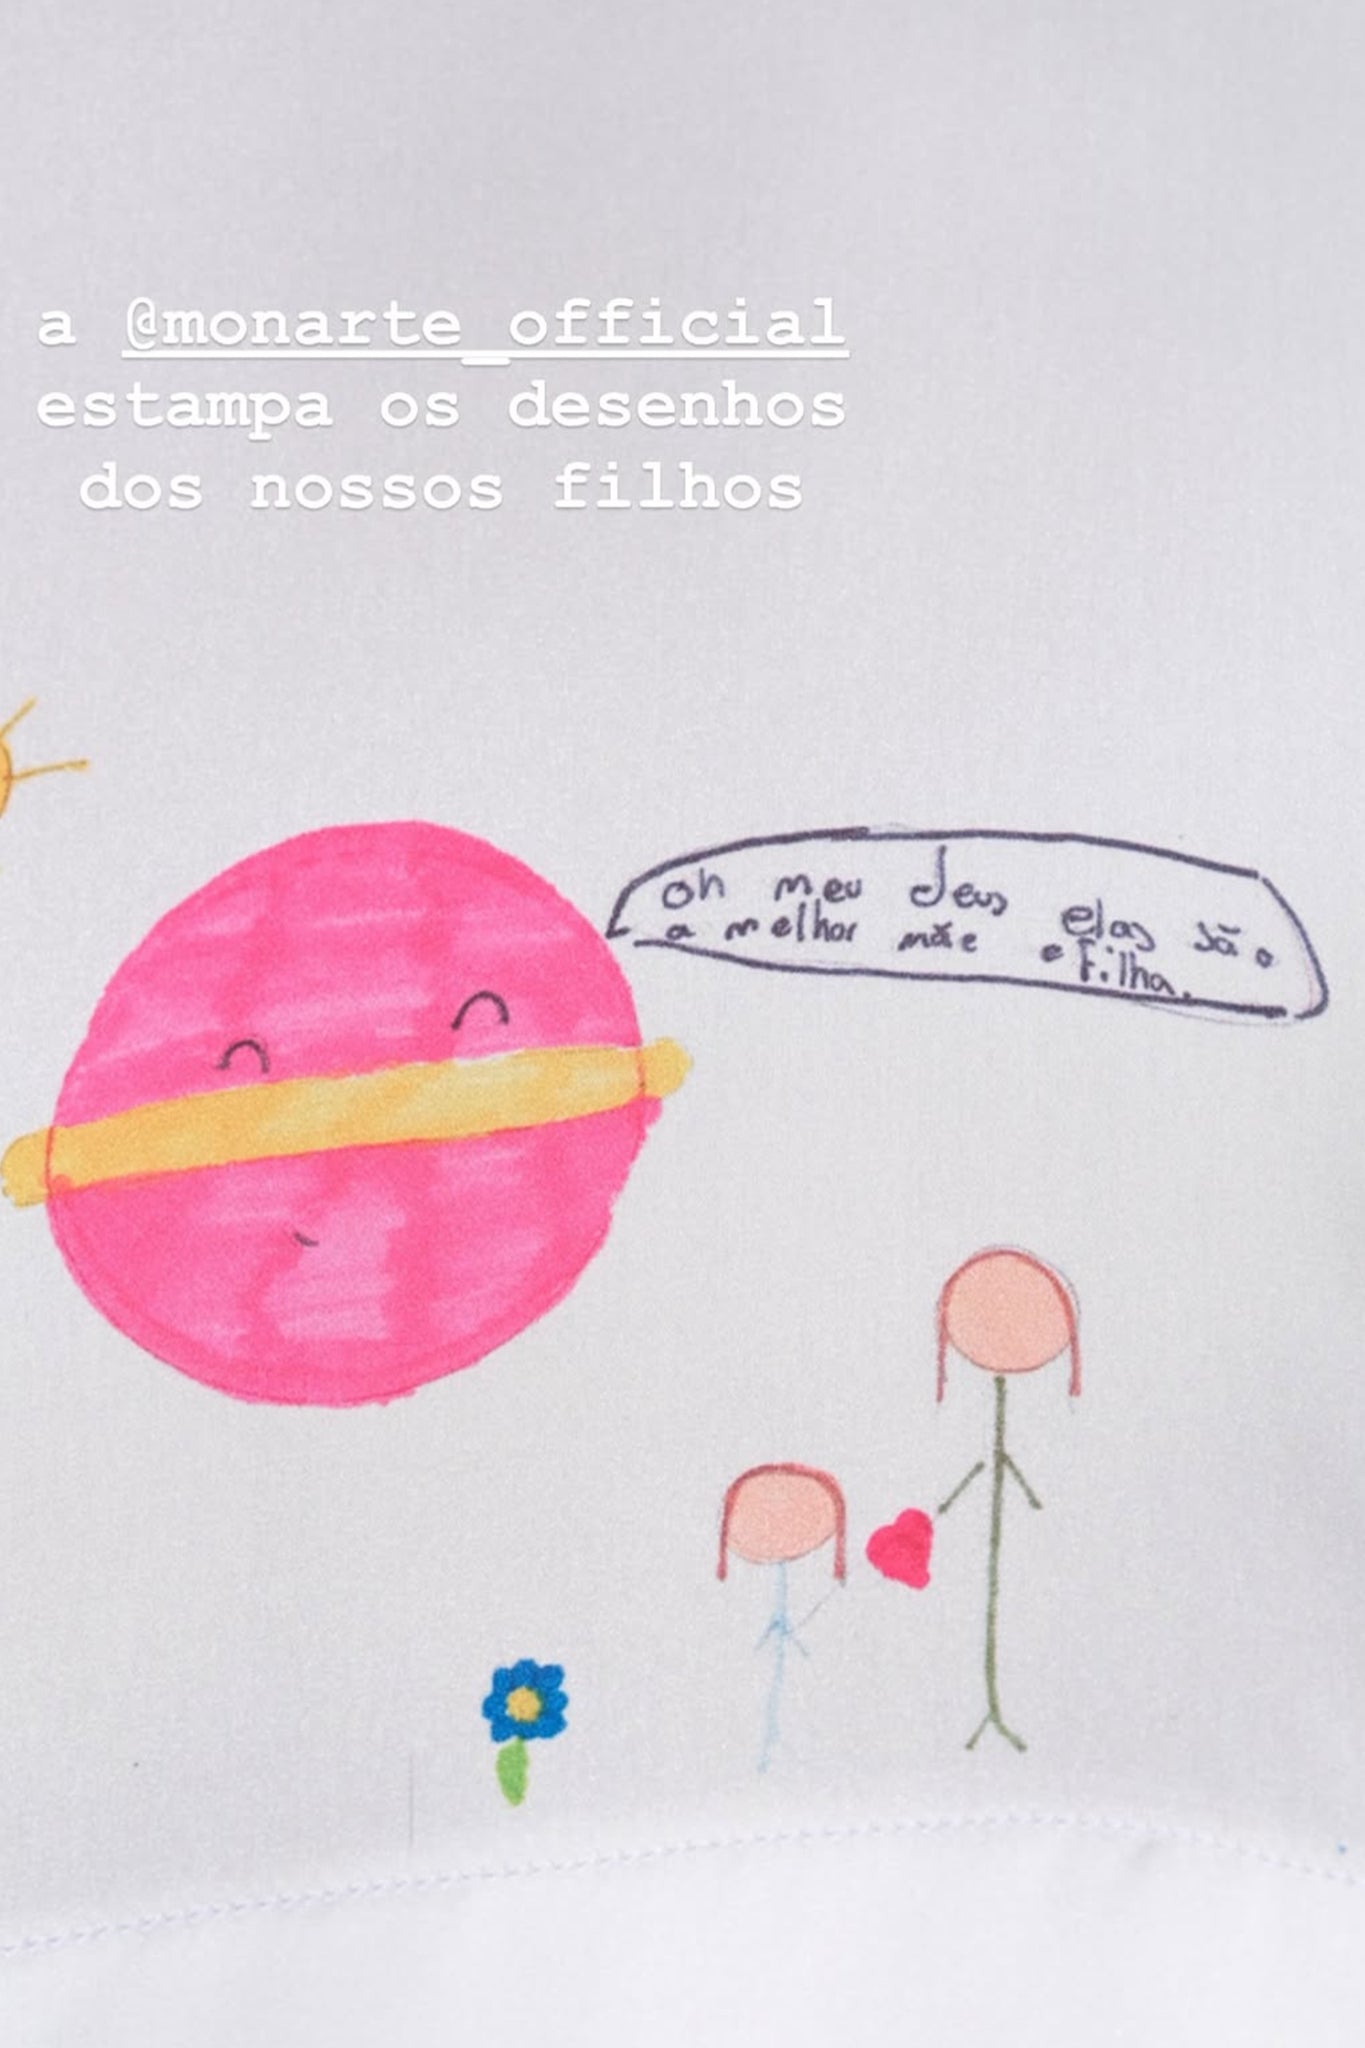 a @monarte_official
estampa os desenhos
dos nossos filhos
oh meu deus elas são
a melhor mãe e filha.